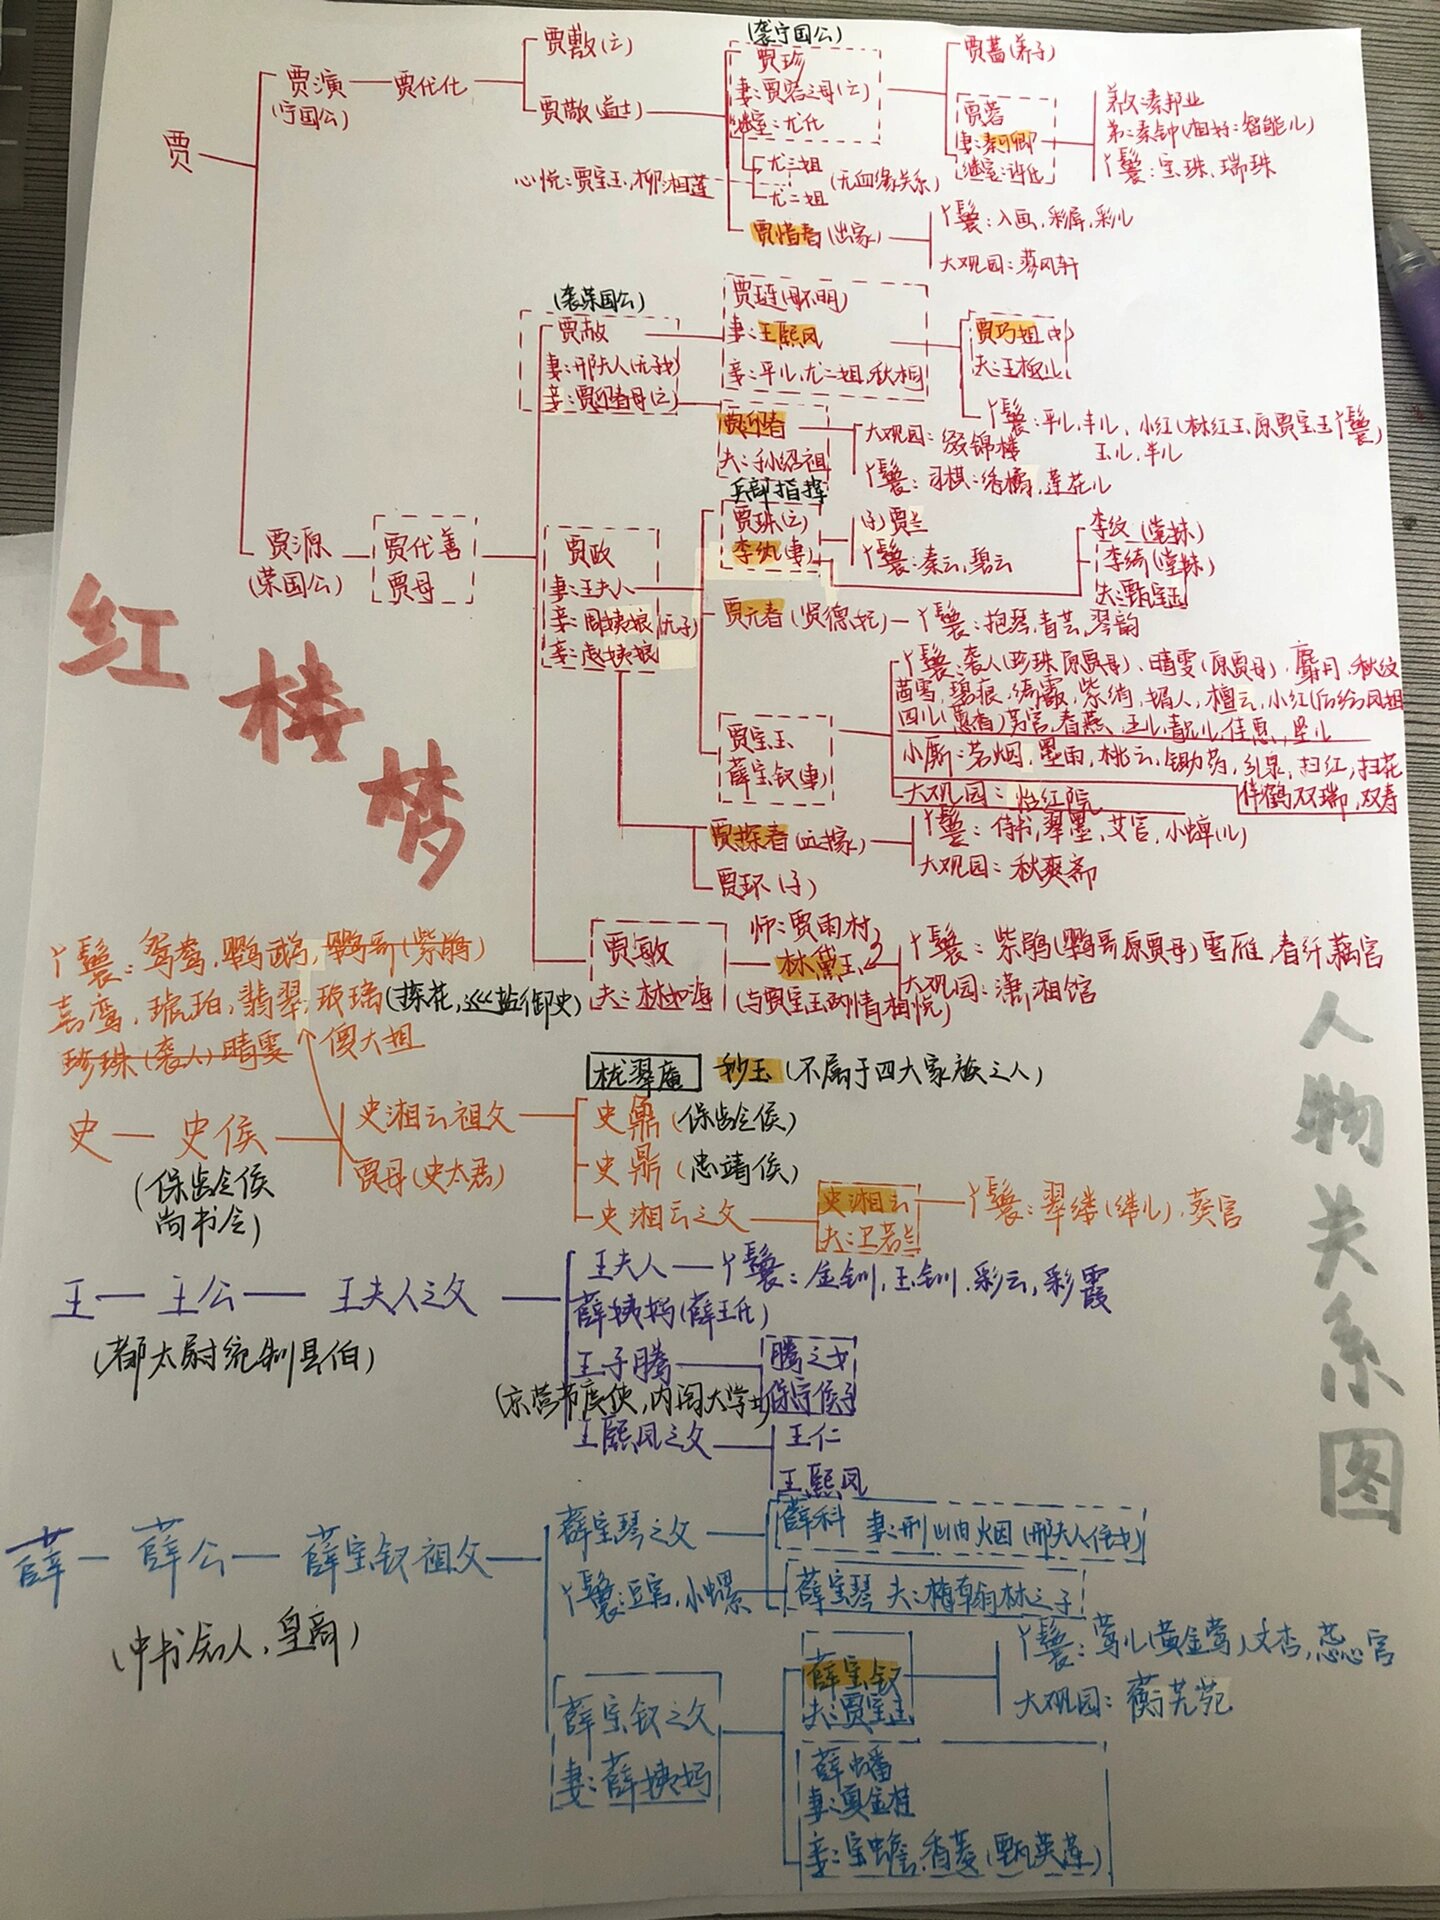 红楼梦
人物关系图
贾
贾演
(宁国公)
贾代化
贾敷(亡)
贾敬(道士)
(袭宁国公)
贾珍
妻:贾蓉之母(亡)
继室:尤氏
尤三姐
尤二姐
(无血缘关系)
心悦:贾宝玉,柳湘莲
贾惜春(出家)
丫鬟:入画,彩屏,彩儿
大观园:蓼风轩
贾蔷(养子)
贾蓉
妻:秦可卿
继室:许氏
养父:秦邦业
弟:秦钟(相好:智能儿)
丫鬟:宝珠、瑞珠
贾源
(荣国公)
贾代善
贾母
(袭荣国公)
贾赦
妻:邢夫人(无子女)
妾:贾迎春母(亡)
贾琏(母不明)
妻:王熙凤
妾:平儿,尤二姐,秋桐
贾巧姐(女)
夫:王板儿
丫鬟:平儿,丰儿、小红(林红玉,原贾宝玉丫鬟)
玉儿,半儿
贾迎春
夫:孙绍祖
兵部指挥
大观园:缀锦楼
丫鬟:司棋:绣橘,莲花儿
贾政
妻:王夫人
妾:周姨娘(无子)
妾:赵姨娘
贾珠(亡)
李纨(妻)
(子)贾兰
丫鬟:素云,碧云
李纹(堂妹)
李绮(堂妹)
夫:甄宝玉
贾元春(贤德妃)
丫鬟:抱琴,青芸,琴韵
贾宝玉
薛宝钗(妻)
丫鬟:袭人(珍珠 原贾母)、晴雯(原贾母),麝月,秋纹
茜雪,碧痕,绮霰,紫绡,媚人,檀云,小红(后给凤姐
四儿(蕙香)芳官,春燕,玉儿,靛儿,佳蕙,坠儿
小厮:茗烟,墨雨,桃云,锄药,引泉,扫红,扫花
伴鹤,双瑞,双寿
大观园:怡红院
贾探春(远嫁)
丫鬟:侍书,翠墨,艾官,小蝉儿)
大观园:秋爽斋
贾环(子)
贾敏
夫:林如海
(探花,巡盐御史)
师:贾雨村
林黛玉
(与贾宝玉两情相悦)
丫鬟:紫鹃(鹦哥 原贾母)雪雁,春纤,藕官
大观园:潇湘馆
丫鬟:鸳鸯,鹦鹉,鹦哥(紫鹃)
喜鸾,琥珀,翡翠,玻璃
珍珠(袭人)晴雯 傻大姐
栊翠庵 妙玉(不属于四大家族之人)
史 史侯
(保龄侯
尚书令)
史湘云祖父
贾母(史太君)
史鼐(保龄侯)
史鼎(忠靖侯)
史湘云之父
史湘云
夫:卫若兰
丫鬟:翠缕(缕儿),葵官
王 王公 王夫人之父
(都太尉统制县伯)
王夫人 丫鬟:金钏,玉钏,彩云,彩霞
薛姨妈(薛王氏)
王子腾
(京营节度使,内阁大学士)
腾之女
保宁侯子
王熙凤之父
王仁
王熙凤
薛 薛公 薛宝钗祖父
(中书舍人,皇商)
薛宝琴之父
丫鬟:豆官,小螺
薛科 妻:邢岫烟(邢夫人侄女)
薛宝琴 夫:梅翰林之子
薛宝钗之父
妻:薛姨妈
薛宝钗
夫:贾宝玉
丫鬟:莺儿(黄金莺)文杏,蕊官
大观园:蘅芜苑
薛蟠
妻:夏金桂
妾:宝蟾,香菱(甄英莲)